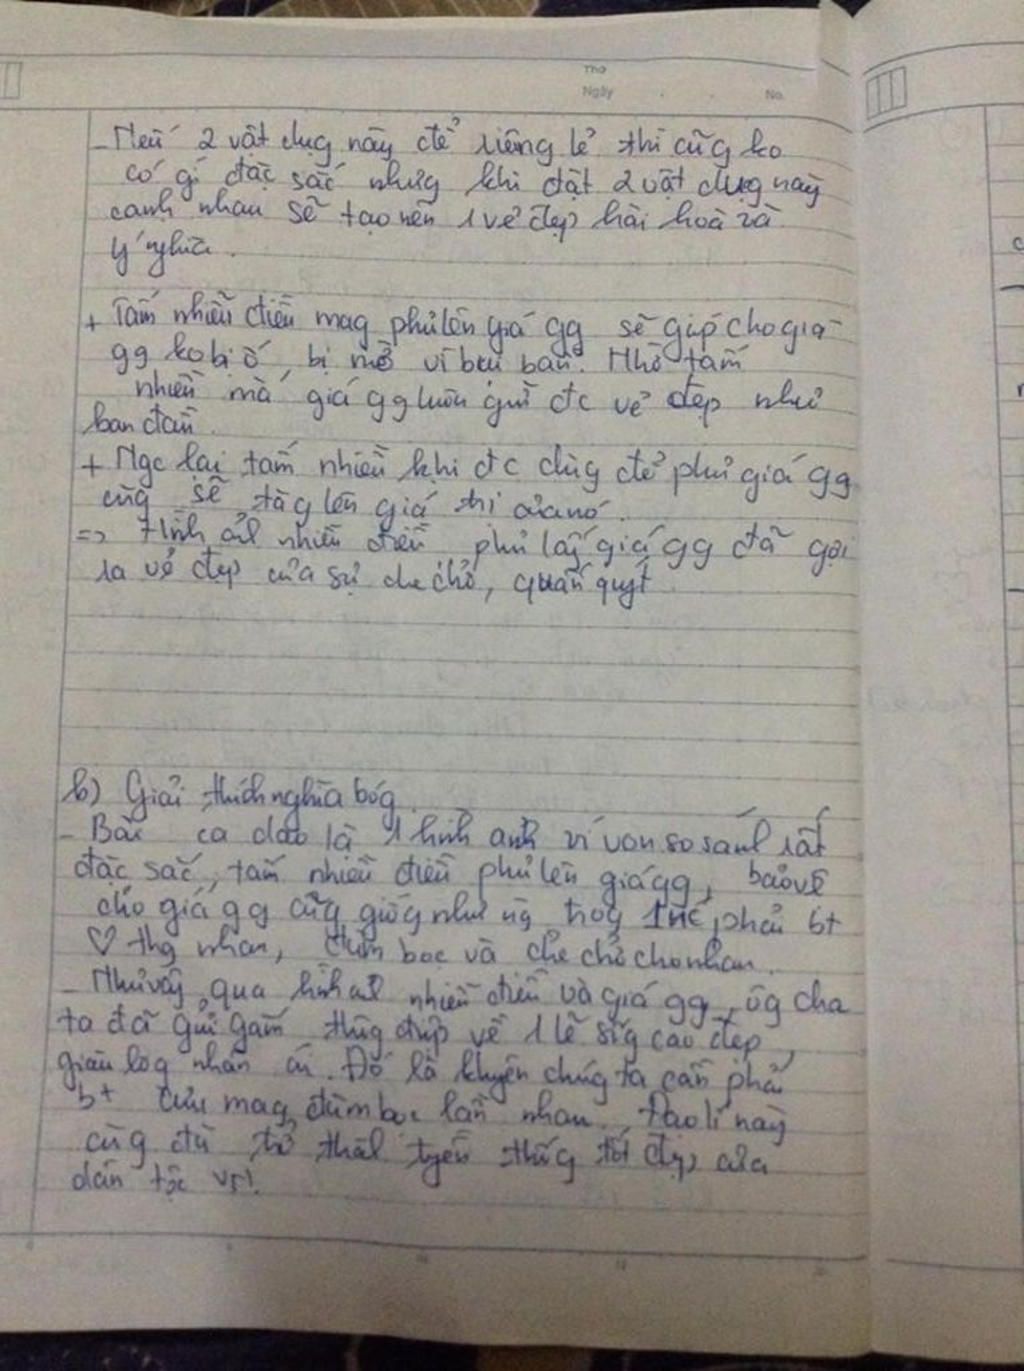 Thứ
Ngày . . No.
- Nếu 2 vật dụg này để riêng lẻ thì cũg ko
có gì đặc sắc nhưg khi đặt 2 vật dụg này
cạnh nhau sẽ tạo nên 1 vẻ đẹp hài hoà và
ý nghĩa.
+ Tấm nhiễu điều mag phủ lên giá gg sẽ giúp cho giá
gg ko bị ố, bị mờ vì bụi bẩn. Nhờ tấm
nhiễu mà giá gg luôn giữ đc vẻ đẹp như
ban đầu.
+ Ngc lại tấm nhiễu khi đc dùg để phủ giá gg
cũg sẽ tăg lên giá trị của nó.
=> Hình ảh nhiễu điều phủ lấy giá gg đã gợi
ra vẻ đẹp của sự che chở, quấn quýt
b) Giải thích nghĩa bóg
- Bài ca dao là 1 hình ảnh ví von so sánh rất
đặc sắc, tấm nhiễu điều phủ lên giá gg, bảo vệ
cho giá gg cũg giốg như ng trog 1 nc phải bt
♡ thg nhau, đùm bọc và che chở cho nhau.
- Như vậy, qua hình ảh nhiễu điều và giá gg, ôg cha
ta đã gửi gắm thôg điệp về 1 lẽ sốg cao đẹp,
giàu lòg nhân ái. Đó là khuyên chúg ta cần phải
bt cưu mag, đùm bọc lẫn nhau. Đạo lí này
cũg đã trở thàh tryền thốg tốt đẹp của
dân tộc VN.